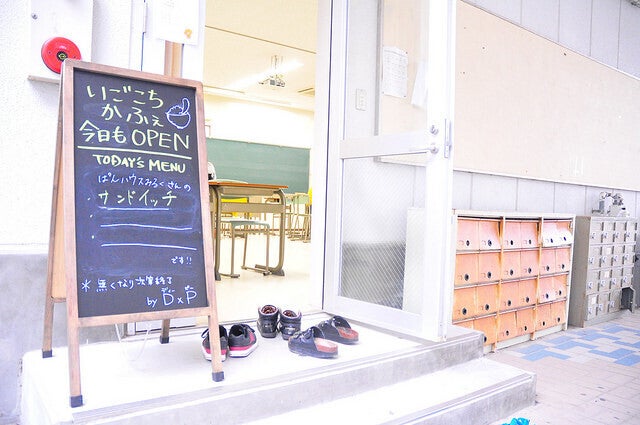 いごこち
かふぇ
今日も OPEN
TODAY'S MENU
ぱんハウスみるくさんの
サンドイッチ
です!!
＊無くなり次第終了
by D×P
ディー ピー